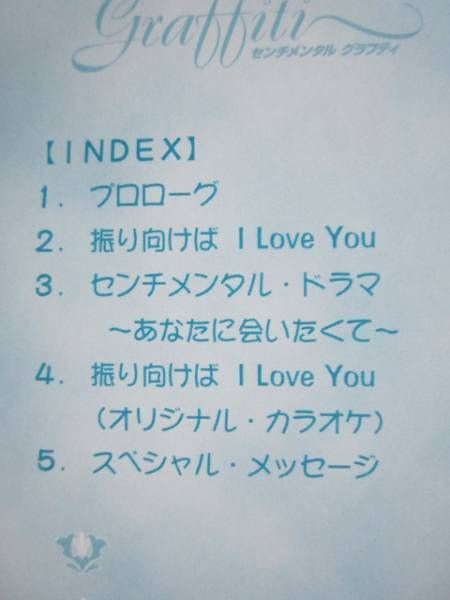 Graffiti
センチメンタル グラフティ
【INDEX】
1. プロローグ
2. 振り向けば I Love You
3. センチメンタル・ドラマ
～あなたに会いたくて～
4. 振り向けば I Love You
(オリジナル・カラオケ)
5. スペシャル・メッセージ